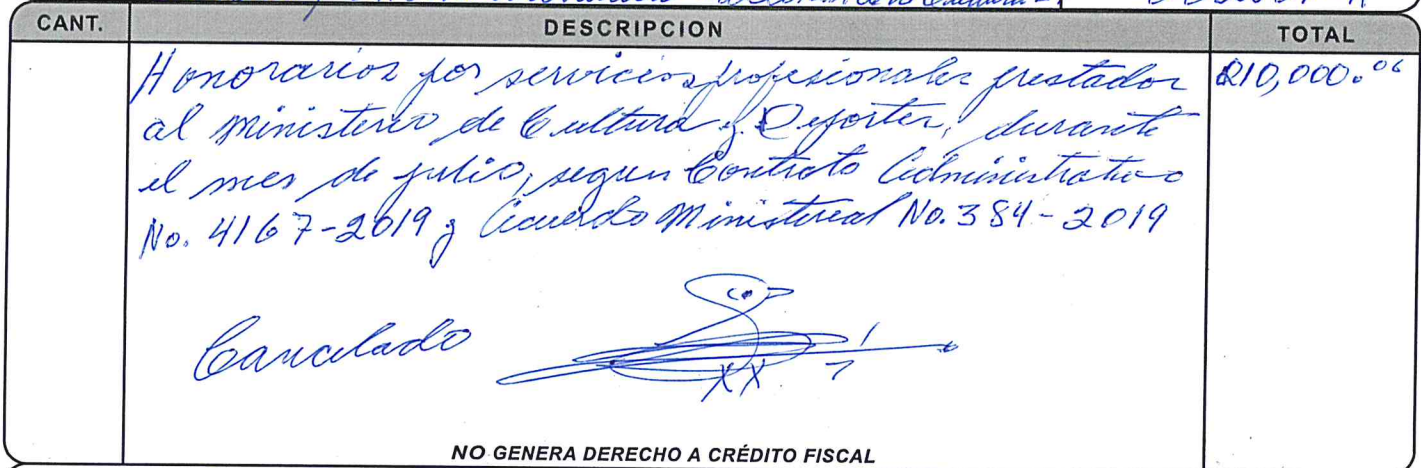 CANT. DESCRIPCION TOTAL
Honorarios por servicios profesionales prestados Q10,000.00
al Ministerio de Cultura y Deportes, durante
el mes de julio, segun Contrato Administrativo
No. 4167-2019 y Acuerdo Ministerial No. 384-2019
Cancelado
NO GENERA DERECHO A CRÉDITO FISCAL